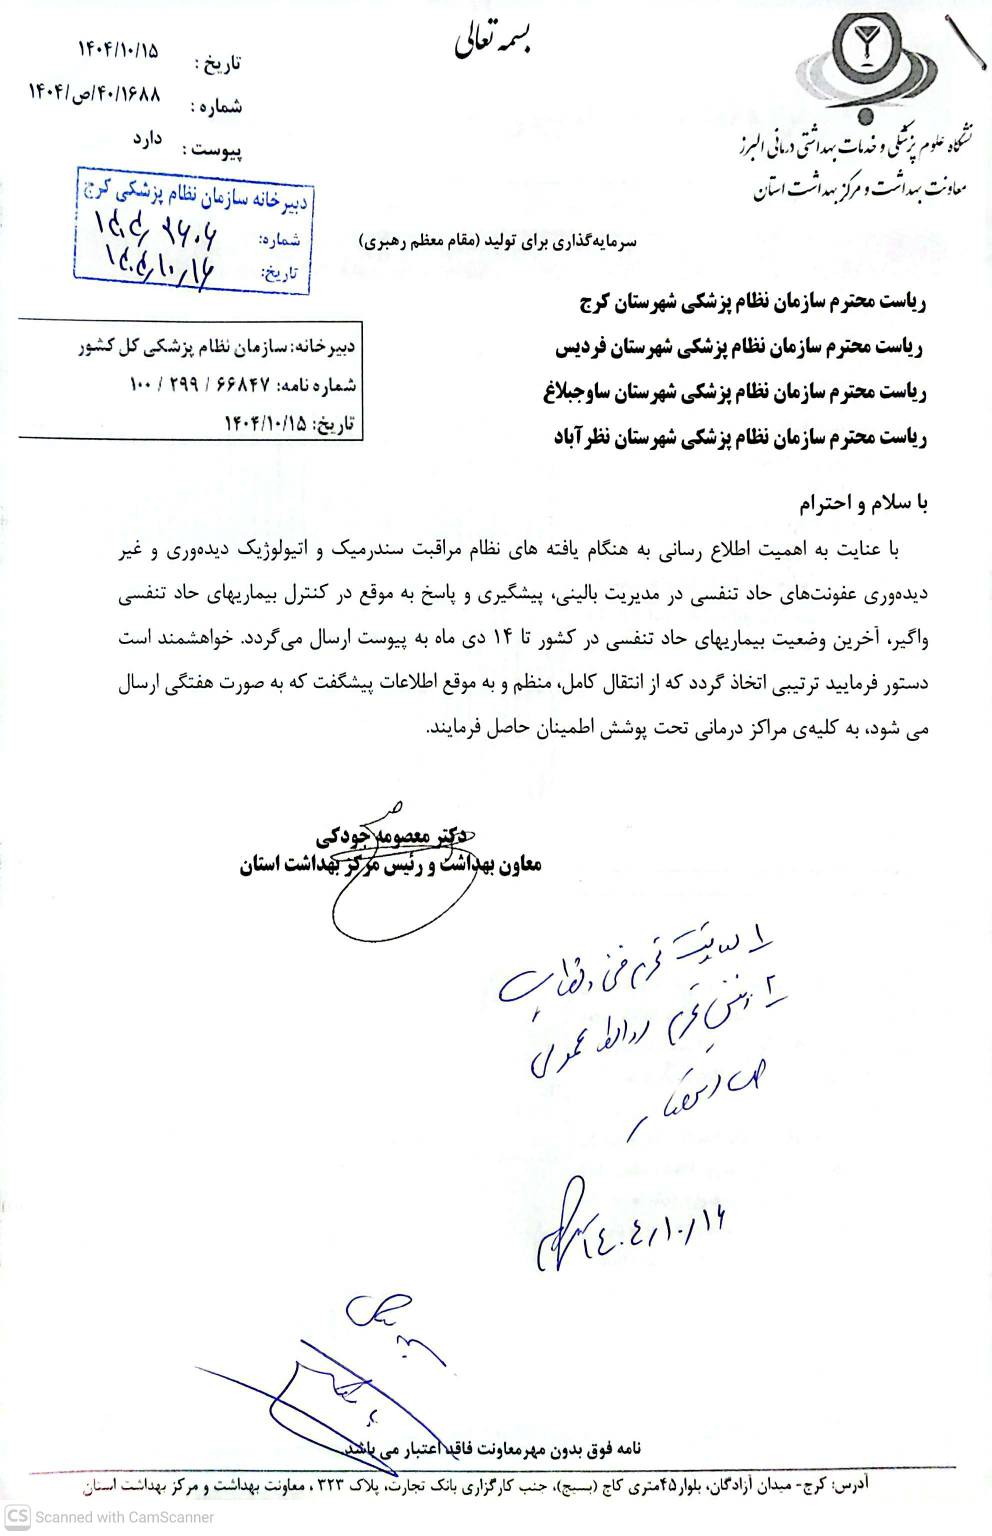 بسمه تعالی
دانشگاه علوم پزشکی و خدمات بهداشتی درمانی البرز
معاونت بهداشت و مرکز بهداشت استان
تاریخ : ۱۴۰۴/۱۰/۱۵
شماره : ۱۴۰۴/ص/۴۰/۱۶۸۸
پیوست : دارد
دبیرخانه سازمان نظام پزشکی کرج
شماره:
تاریخ: ۱۴۰۴/۱۰/۱۶
سرمایه‌گذاری برای تولید (مقام معظم رهبری)
ریاست محترم سازمان نظام پزشکی شهرستان کرج
ریاست محترم سازمان نظام پزشکی شهرستان فردیس
ریاست محترم سازمان نظام پزشکی شهرستان ساوجبلاغ
ریاست محترم سازمان نظام پزشکی شهرستان نظرآباد
دبیرخانه: سازمان نظام پزشکی کل کشور
شماره نامه: ۶۶۸۴۷ / ۲۹۹ / ۱۰۰
تاریخ: ۱۴۰۴/۱۰/۱۵
با سلام و احترام
با عنایت به اهمیت اطلاع رسانی به هنگام یافته های نظام مراقبت سندرمیک و اتیولوژیک دیده‌وری و غیر
دیده‌وری عفونت‌های حاد تنفسی در مدیریت بالینی، پیشگیری و پاسخ به موقع در کنترل بیماریهای حاد تنفسی
واگیر، آخرین وضعیت بیماریهای حاد تنفسی در کشور تا ۱۴ دی ماه به پیوست ارسال می‌گردد. خواهشمند است
دستور فرمایید ترتیبی اتخاذ گردد که از انتقال کامل، منظم و به موقع اطلاعات پیشگفت که به صورت هفتگی ارسال
می شود، به کلیه‌ی مراکز درمانی تحت پوشش اطمینان حاصل فرمایند.
دکتر معصومه جودکی
معاون بهداشت و رئیس مرکز بهداشت استان
۱
۲ محترم روابط عمومی
۱۴۰۴/۱۰/۱۶
نامه فوق بدون مهرمعاونت فاقد اعتبار می باشد
آدرس: کرج- میدان آزادگان، بلوار۴۵متری کاج (بسیج)، جنب کارگزاری بانک تجارت، پلاک ۳۲۳ ، معاونت بهداشت و مرکز بهداشت استان
CS Scanned with CamScanner